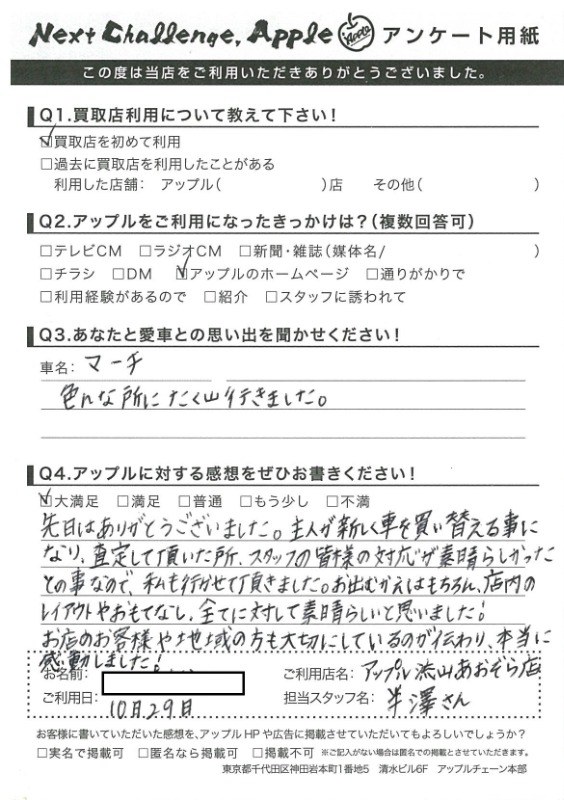 Next Challenge, Apple Apple アンケート用紙
この度は当店をご利用いただきありがとうございました。
Q1.買取店利用について教えて下さい!
☑買取店を初めて利用
□過去に買取店を利用したことがある
利用した店舗: アップル( )店 その他( )
Q2.アップルをご利用になったきっかけは?(複数回答可)
□テレビCM □ラジオCM □新聞・雑誌(媒体名/ )
□チラシ □DM ☑アップルのホームページ □通りがかりで
□利用経験があるので □紹介 □スタッフに誘われて
Q3.あなたと愛車との思い出を聞かせください!
車名: マーチ
色んな所にたく山行きました。
Q4.アップルに対する感想をぜひお書きください!
☑大満足 □満足 □普通 □もう少し □不満
先日はありがとうございました。主人が新しく車を買い替える事に
なり、査定して頂いた所、スタッフの皆様の対応が素晴らしかった
との事なので、私も行かせて頂きました。お出むかえはもちろん、店内の
レイアウトやおもてなし、全てに対して素晴らしいと思いました!
お店のお客様や地域の方も大切にしているのが伝わり、本当に
感動しました!
お名前: ご利用店名: アップル流山あおぞら店
ご利用日: 10月29日 担当スタッフ名: 半澤さん
お客様に書いていただいた感想を、アップルHPや広告に掲載させていただいてもよろしいでしょうか?
□実名で掲載可 □匿名なら掲載可 □掲載不可 ※ご記入がない場合は匿名での掲載とさせていただきます。
東京都千代田区神田岩本町1番地5 清水ビル6F アップルチェーン本部